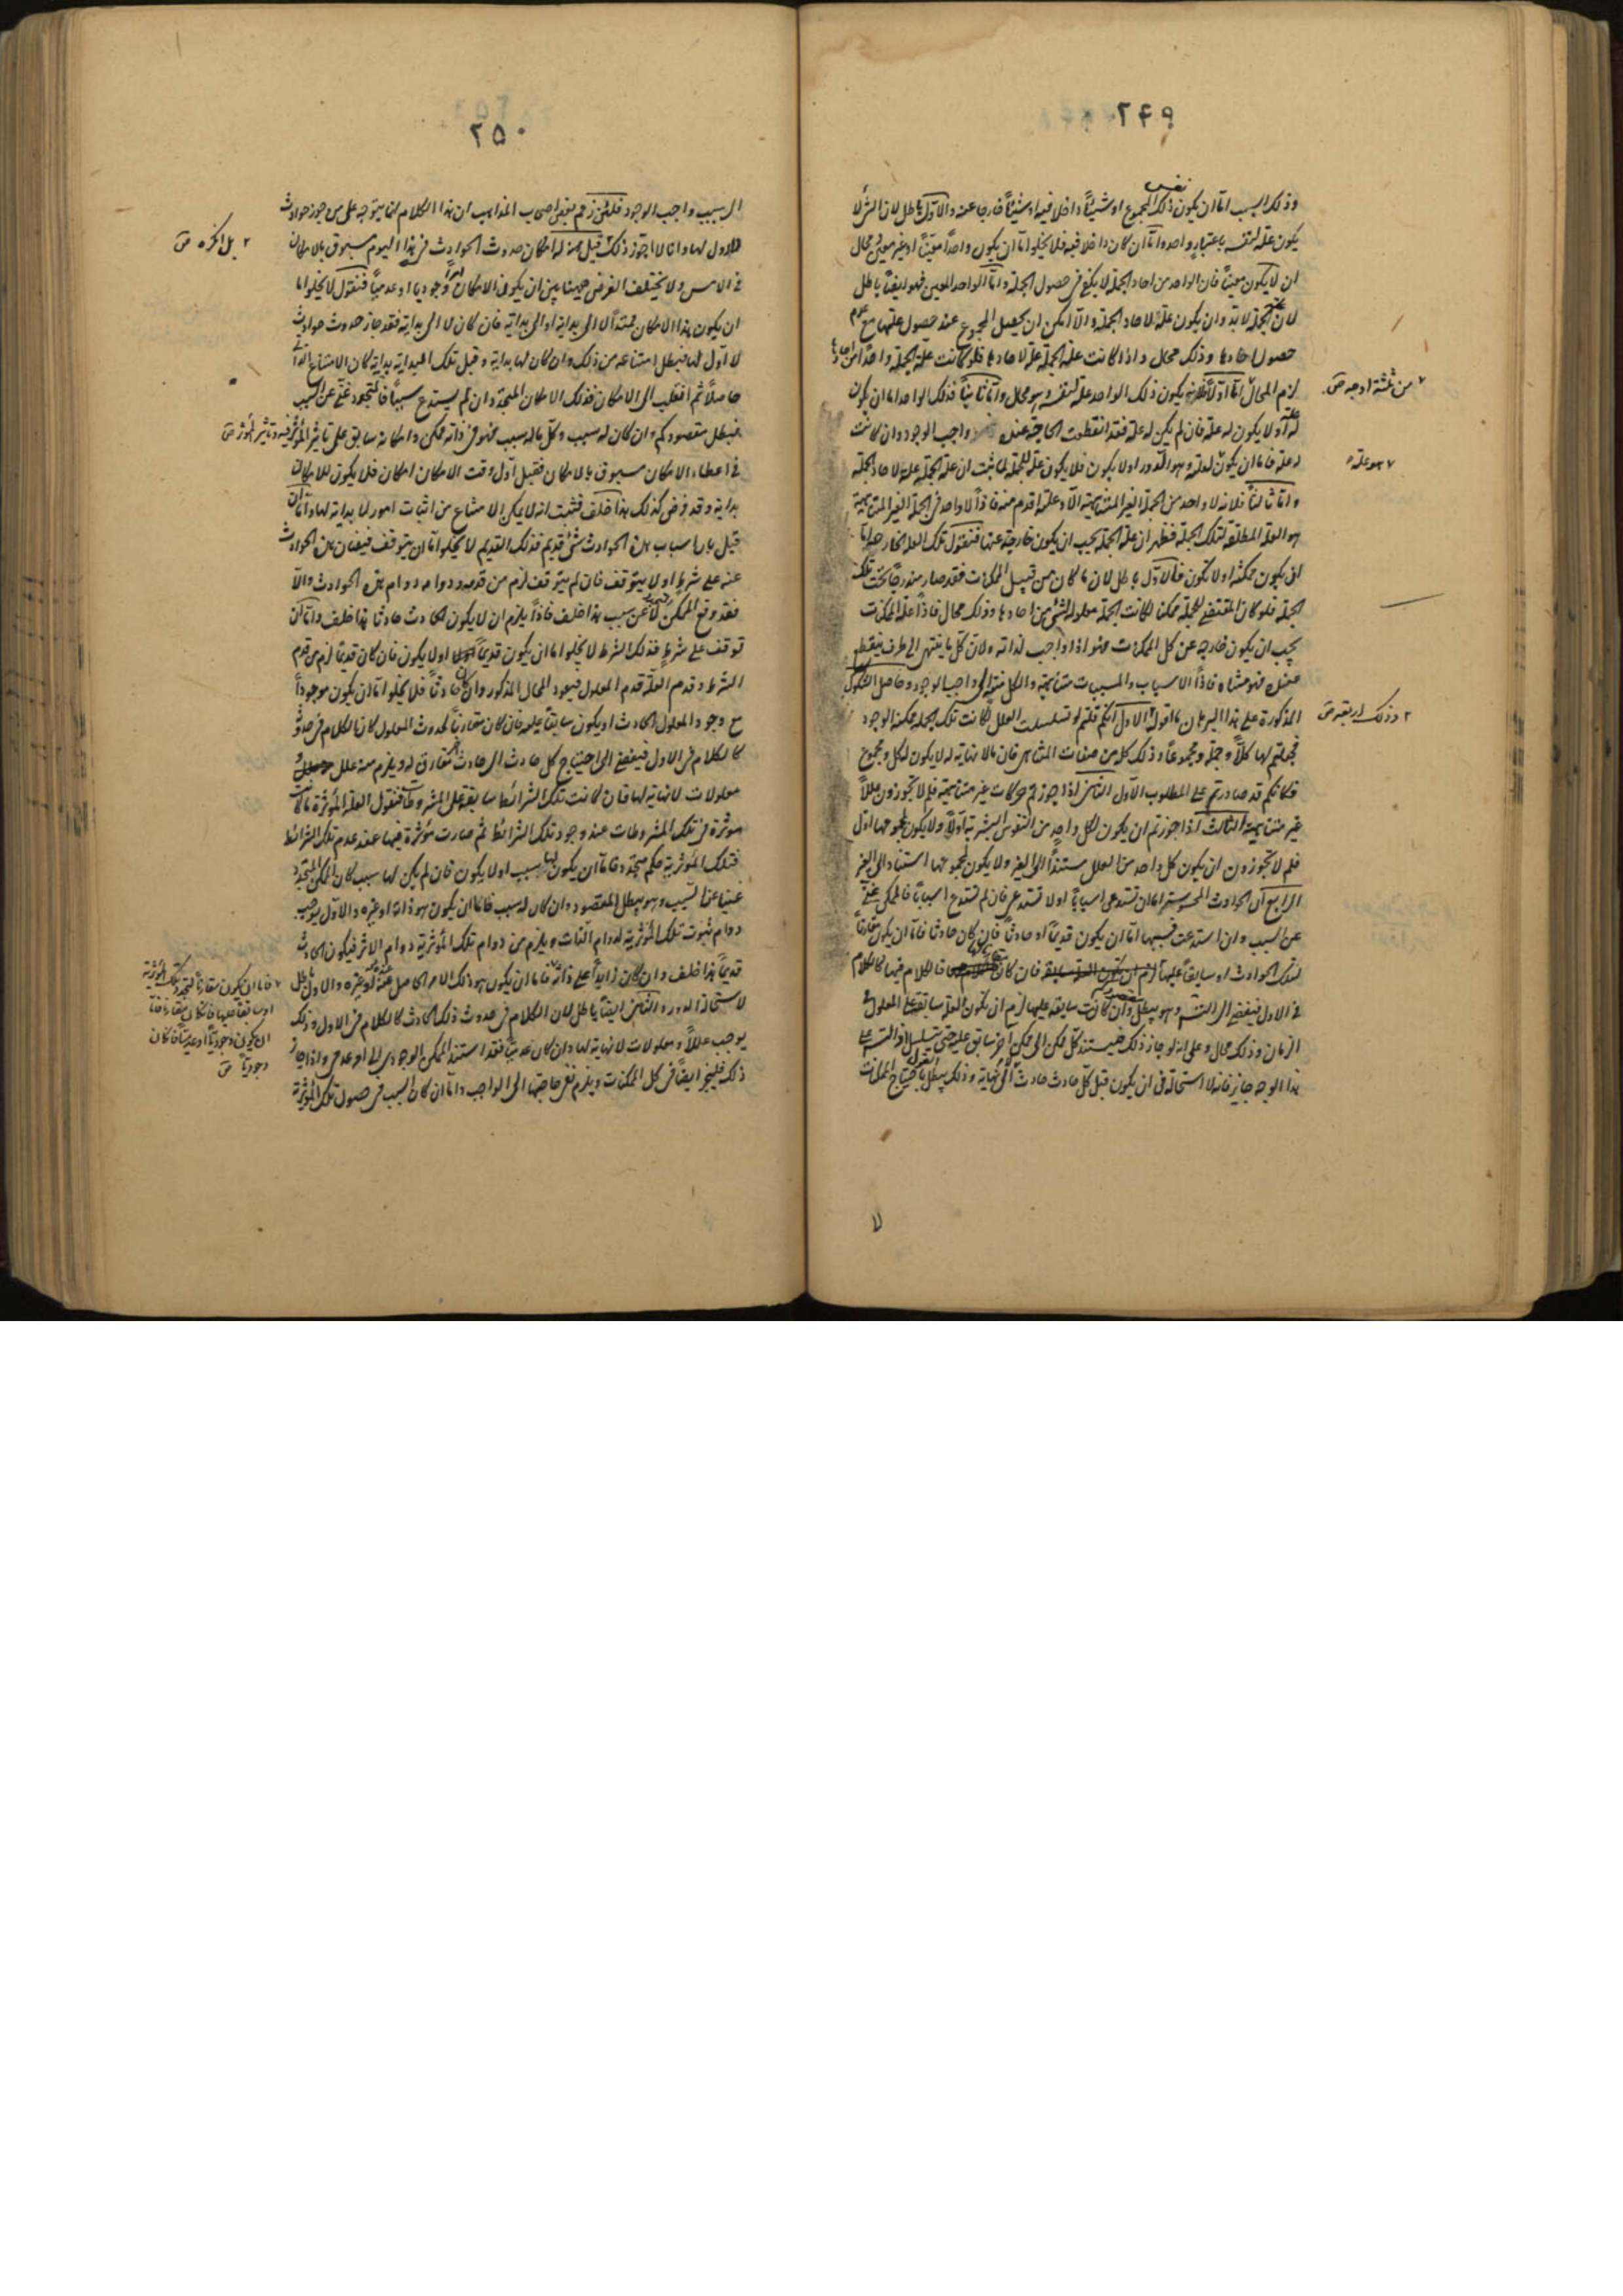 ٢٤٩
وذلك السبب اما ان يكون نفس ذلك المجموع او شيئاً داخلا فيه او شيئاً خارجا عنه والاول باطل لان الشئ لا
يكون علة لنفسه باعتبار واحد واما ان كان داخلا فيه فلا يخلوا اما ان يكون واحداً معيناً او غير معين محال
ان لا يكون معيناً فان الواحد من احاد الجملة لا يكفي في حصول الجملة واما الواحد المعين فهو ايضاً باطل
لان علة الجملة لابد وان يكون علة لاحاد الجملة والا امكن ان يحصل المجموع عند حصول علتها مع عدم
حصول احادها وذلك محال واذا كانت علة الجملة علة لاحادها فلو كانت علة الجملة واحداً من احادها
لزم المحال اما اولاً فلان يكون ذلك الواحد علة لنفسه وهو محال واما ثانياً فذلك الواحد اما ان يكون
له علة او لا يكون له علة فان لم يكن له علة فقد انقطعت الحاجة عنده واجب الوجود وان كانت
له علة فاما ان يكون لعلته وهو الدور او لا يكون فلا يكون علة للجملة لما ثبت ان علة الجملة علة لاحاد الجملة
واما ثالثاً فلانه لا واحد من الجملة الغير المتناهية الا وعلته اقدم منه فاذاً لا واحد في الجملة الغير المتناهية
هو العلة المطلقة لتلك الجملة فظهر ان علة الجملة يجب ان يكون خارجة عنها فنقول تلك العلة الخارجة اما
ان يكون ممكنة او لا تكون فالاول باطل لان ما كان من قبيل الممكنات فقد صار مندرجاً تحت تلك
الجملة فلو كان المقتضي للجملة ممكنا لكانت الجملة معلولة لشئ من احادها وذلك محال فاذاً علة الممكنات
يجب ان يكون خارجه عن كل الممكنات فهو اذا واجب لذاته ولان كل ما ينتهي الى طرف ينقطع
عنده فهو متناه فاذاً الاسباب والمسببات متناهية والكل منته الى واجب الوجود وحاصل الشكوك
المذكورة على هذا البرهان ما اقول الاول انكم قلتم لو تسلسلت العلل لكانت تلك الجملة ممكنة الوجود
فجعلتم لها كلاً وجملة ومجموعاً وذلك كله من صفات المتناهي فان ما لا نهاية له لا يكون له كل ومجموع
فكانكم قد صادرتم على المطلوب الاول الثاني اذا جوزتم حركات غير متناهية فلم لا تجوزون عللاً
غير متناهية الثالث اذا جوزتم ان يكون لكل واحد من النفوس البشرية اولاً ولا يكون لمجموعها اول
فلم لا تجوزون ان يكون كل واحد من العلل مستنداً الى الغير ولا يكون لمجموعها استناد الى الغير
الرابع ان الحوادث المحسوسة اما ان تستدعى اسباباً او لا تستدعى فان لم تستدع اسباباً فالممكن غني
عن السبب وان استدعت فسببها اما ان يكون قديماً او حادثاً فان كان حادثا فاما ان يكون مقارناً
لتلك الحوادث او سابقاً عليها فان كان مقارنا لها فالكلام فيها كالكلام
في الاول فيفضي الى التسلسل وهو يبطل مقصودكم وان كانت سابقة عليها لزم ان يكون العلة سابقة على المعلول في
الزمان وذلك محال وعلى انه لو جاز ذلك فليستند كل ممكن الى ممكن اخر سابق عليه حتى يتسلسل اذ التسلسل على
هذا الوجه جايز فانه لا استحالة في ان يكون قبل كل حادث حادث لا الى نهاية وذلك يبطل القول باحتياج الممكنات
٢ من ثلثة اوجه ص
٧ هو علة ه
٢ وذلك اربعة ص
٢٥٠
الى سبب واجب الوجود فلئن زعم بعض اصحاب المذاهب ان هذا الكلام انما يتوجه على من جوز حوادث
لا اول لها وانا لا اجوز ذلك قيل له امكان حدوث الحوادث في هذا اليوم مسبوق بالامكان
في الامس ولا يختلف الغرض ههنا بين ان يكون الامكان امراً وجوديا او عدمياً فنقول لا يخلوا اما
ان يكون هذا الامكان ممتداً لا الى بداية او الى بداية فان كان لا الى بداية فقد جاز حدوث حوادث
لا اول لها فبطل امتناعه من ذلك وان كان لها بداية وقبل تلك البداية بداية كان الامتناع الذاتي
حاصلاً ثم انقلب الى الامكان فذلك الامكان المتجدد ان لم يستدع سبباً فالمتجدد غني عن السبب
فيبطل مقصودكم وان كان له سبب وكل ماله سبب فهو في ذاته ممكن وامكانه سابق على تاثير المؤثر فيه وتاثير المؤثر ص
في اعطاء الامكان مسبوق بالامكان فقبل اول وقت الامكان امكان فلا يكون للامكان
بداية وقد فرض كذلك هذا خلف فثبت انه لا يمكن الامتناع من اثبات امور لا بداية لها واما ان
قيل بان اسباب هذه الحوادث شئ قديم فذلك القديم لا يخلوا اما ان يتوقف فيضان هذه الحوادث
عنه على شرط او لا يتوقف فان لم يتوقف لزم من قدمه ودوامه دوام هذه الحوادث والا
فقد وقع الممكن لا عن سبب هذا خلف فاذاً يلزم ان لا يكون الحادث حادثا هذا خلف واما ان
توقف على شرط فذلك الشرط لا يخلوا اما ان يكون قديماً او لا يكون فان كان قديماً لزم من قدم
الشرط وقدم العلة قدم المعلول فيعود المحال المذكور وان كان حادثاً فلا يخلوا اما ان يكون موجوداً
مع وجود المعلول الحادث او يكون سابقاً عليه فان كان مقارناً لحدوث المعلول كان الكلام في حدوثه
كالكلام في الاول فيفضي الى احتياج كل حادث الى حادث مقارن له ويلزم منه علل و
معلولات لا نهاية لها فان كانت تلك الشرائط سابقة على المشروطات فنقول العلة المؤثرة ما كانت
مؤثرة في تلك المشروطات عند وجود تلك الشرائط ثم صارت مؤثرة فيها عند عدم تلك الشرائط
فتلك المؤثرية حكم متجدد فاما ان يكون لها سبب او لا يكون فان لم يكن لها سبب كان الممكن المتجدد
غنيا عن السبب وهو يبطل المقصود وان كان له سبب فاما ان يكون هو ذاته او غيره والاول يوجب
دوام ثبوت تلك المؤثرية لدوام الذات ويلزم من دوام تلك المؤثرية دوام الاثر فيكون الحادث
قديماً هذا خلف وان كان زايداً على ذاته فاما ان يكون هو ذلك الامر الحاصل عنه او غيره والاول باطل
لاستحالة الدور والثاني ايضاً باطل لان الكلام في حدوث ذلك الحادث كالكلام في الاول وذلك
يوجب عللاً ومعلولات لا نهاية لها وان كان عدمياً فقد استند الممكن الوجودى الى امر عدمى واذا جاز
ذلك فليجز ايضاً في كل الممكنات ويلزم نفي حاجتها الى الواجب واما ان كان السبب في حصول تلك المؤثرية
٢ بل انكره ص
٧ فاما ان يكون مقارناً لتجدد تلك المؤثرية
او سابقا عليها فان كان مقارنا فاما
ان يكون وجودياً او عدمياً فان كان
وجودياً ص